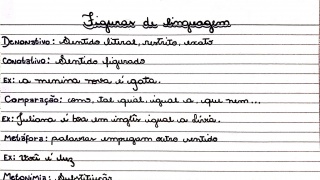 Figuras de linguagem
Denotativo: Sentido literal, restrito, exato
Conotativo: Sentido figurado
Ex: a menina nova é gata.
Comparação: como, tal qual, igual a, que nem...
Ex: Juliana é boa em inglês igual a Lívia.
Metáfora: palavras empregam outro sentido
Ex: Você é luz
Metonímia: Substituição